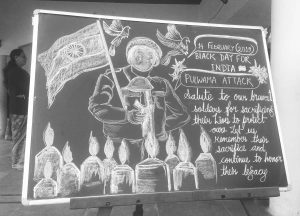 14 FEBRUARY (2019)
BLACK DAY FOR
INDIA
PULWAMA ATTACK
Salute to our bravest
soldiers for sacrificing
their lives to protect
our. Let us
remember their
sacrifice and
continue to honor
their legacy